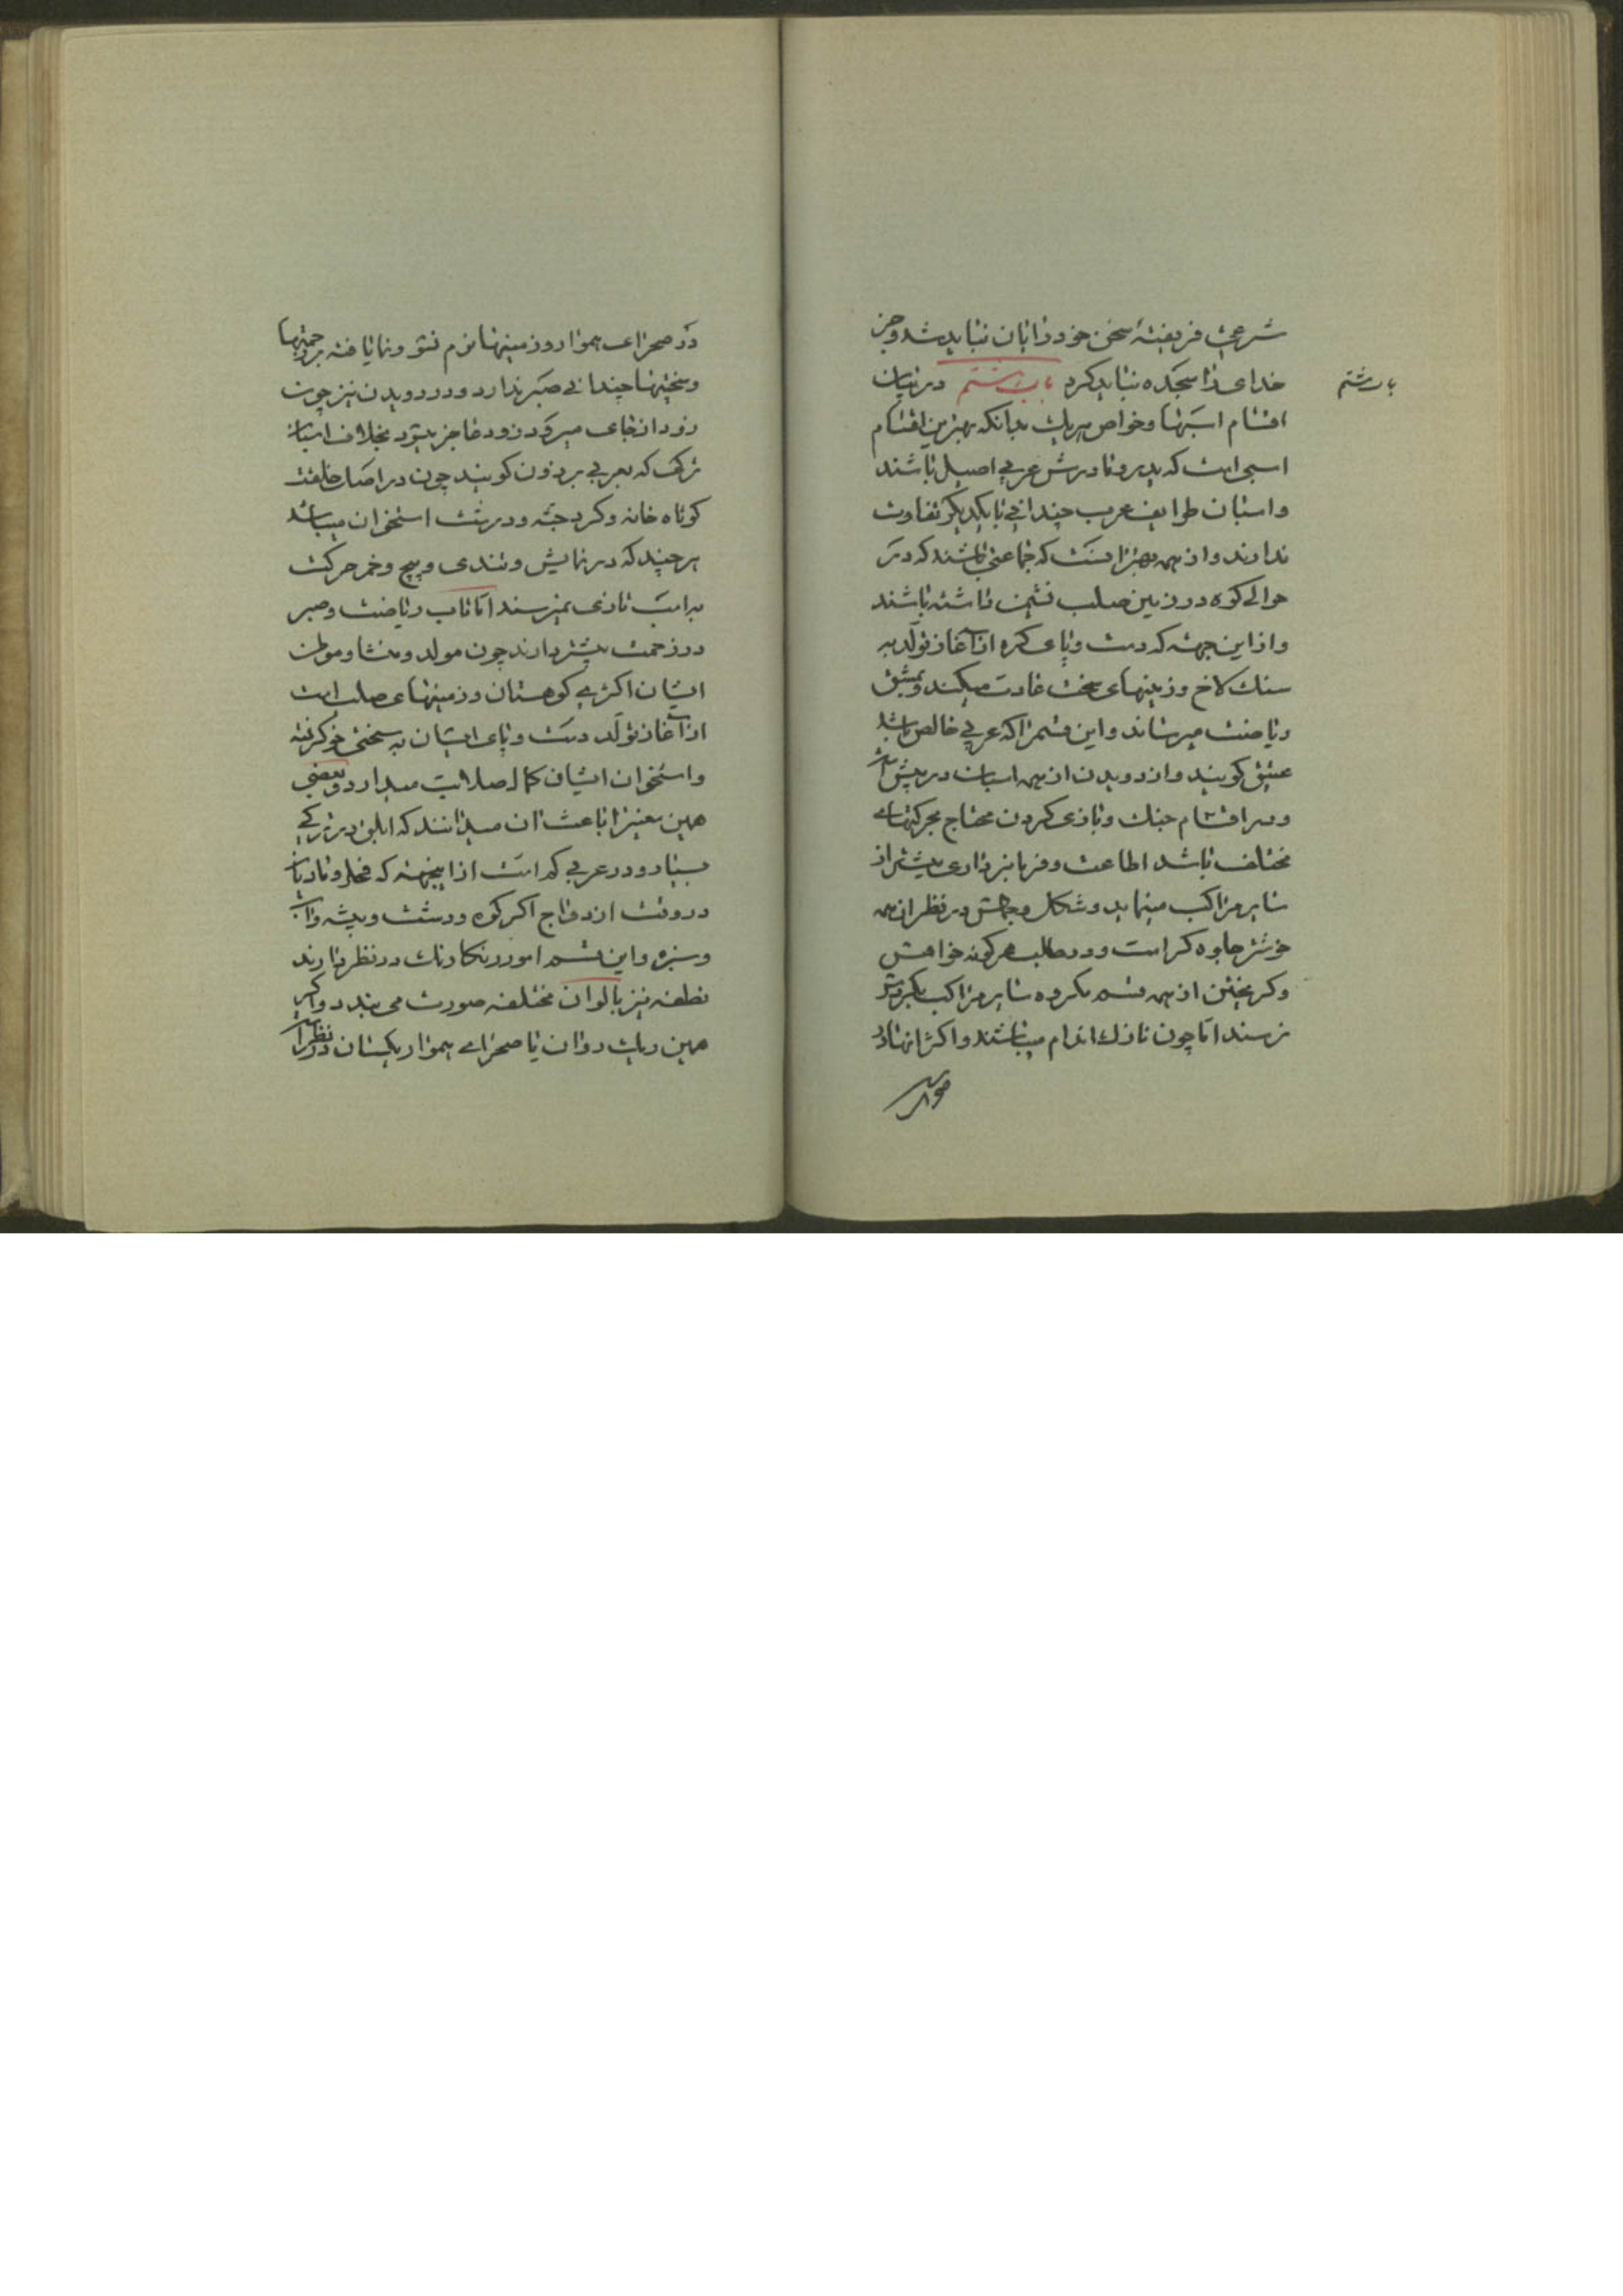 شرعی فریفتهٔ سخن خود زابان نباید شد و جز
خدای را سجده نباید کرد باب هشتم در بیان
باب هشتم
اقسام اسبها و خواص هر یک بدانکه بهترین اقسام
اسبی است که پدر و مادرش عربی اصیل باشند
و اسبان طوایف عرب چندانی با یکدیگر تفاوت
ندارند و از همه بهتر آنست که جماعتی باشند که در
حوالی کوه و در زمین صلب نشیمن داشته باشند
و از این جهت که دست و پای کره از آغاز تولد به
سنک لاخ و زمینهای سخت عادت میکند و بمشق
ریاضت میرساند و این قسم را که عربی خالص باشد
عتیق کویند و از دویدن از همه اسبان در پیش است
و در اقسام جنک و بازی کردن محتاج بحرکتهای
مختلف باشد اطاعت و فرمانبرداری بیشتر از
سایر مراکب مینماید و شکل و جمالش در نظر از همه
خوشتر جلوه کر است و در طلب هرکونه خواهش
و کریختن از همه قسم بکرده سایر مراکب بکردش
نرسند اما چون نازک اندام میباشند و اکثر آنها در
صحرای
در صحرای هموار و زمینهای نرم نشو و نما یافته بر زحمتها
و سختیها چندانی صبر ندارد و در دویدن نیز چون
زود از جای میرود زود عاجز میشود بخلاف اسبان
ترک که بعربی برذون کویند چون در اصل خلقت
کوتاه خانه و کرد جثه و درشت استخوان میباشد
هر چند که در نمایش و تندی و پیچ و خم حرکت
به اسب تازی نمیرسند اما تاب ریاضت و صبر
در زحمت بیشتر دارند چون مولد و منشا و موطن
ایشان اکثری کوهستان و زمینهای صلب است
از آغاز تولد دست و پای ایشان به سختی خو کرفته
و استخوان ایشان کمال صلابت میدارد و بعضی
همین معنی را باعث آن میدانند که ابلق در ترکی
بسیار و در عربی کم است از اینجهته که فحل و مادیان
در وقت ازدواج اکر کوه و دشت و بیشه و آب
و سبزه و این قسم امور رنکارنک در نظر دارند
نطفه نیز بالوان مختلفه صورت می بندد و اکر
همین ریک روان یا صحرای هموار ریکستان در نظر است